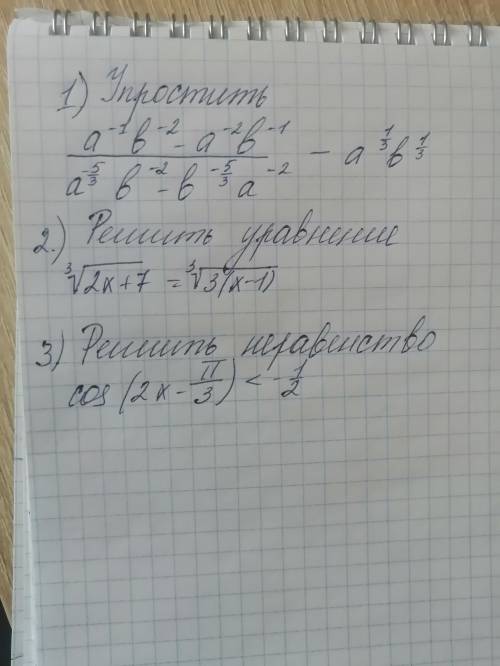 1) Упростить
(a⁻¹b⁻² - a⁻²b⁻¹)/(a^(-5/3) b⁻² - b^(-5/3) a⁻²) - a^(1/3) b^(1/3)
2.) Решить уравнение
∛(2x+7) = ∛(3(x-1))
3) Решить неравенство
cos (2x - π/3) < -1/2